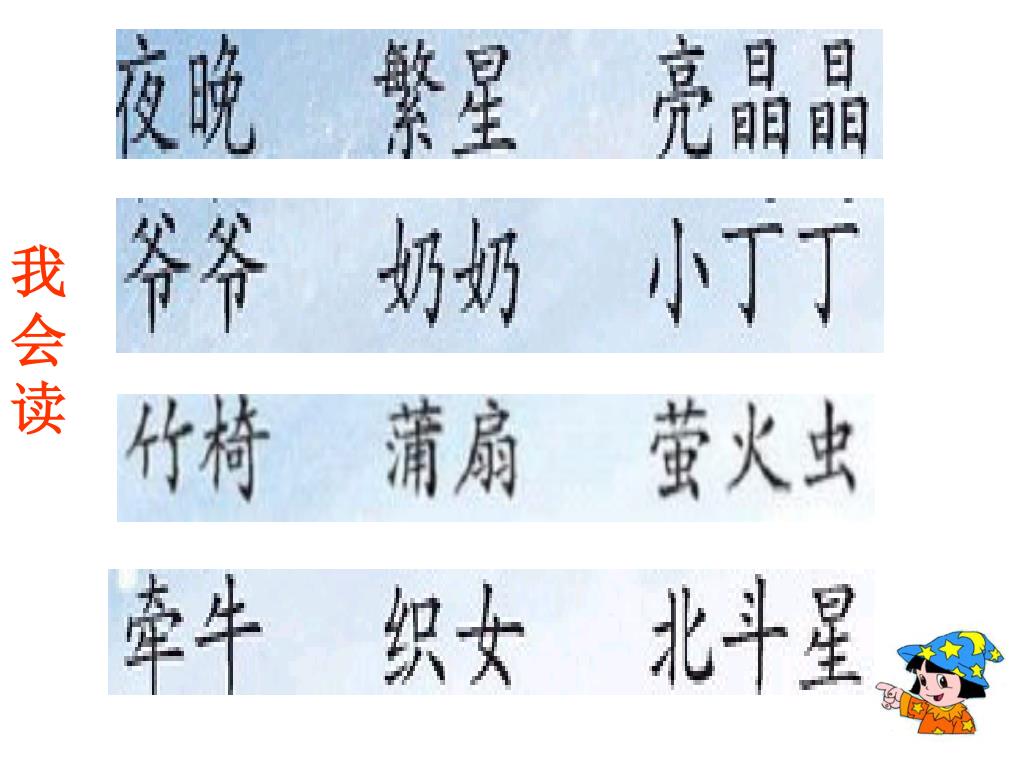 我会读
夜晚 繁星 亮晶晶
爷爷 奶奶 小丁丁
竹椅 蒲扇 萤火虫
牵牛 织女 北斗星